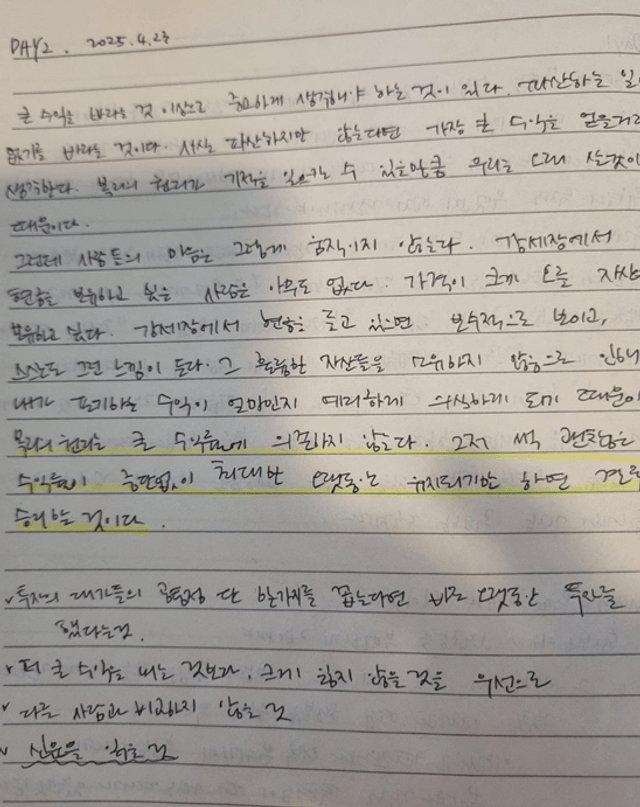 DAY2. 2025.4.23
큰 수익을 바라는 것 이상으로 중요하게 생각해야 하는 것이 있다. 파산하는 일
없기를 바라는 것이다. 사실 파산하지만 않는다면 가장 큰 수익을 얻을거라
생각한다. 복리의 원리가 기적을 일으키는 수 있을만큼 우리는 오래 사는것이
때문이다.
그런데 사람들의 마음은 그렇게 움직이지 않는다. 강세장에서
현금을 보유하고 싶은 사람은 아무도 없다. 가격이 크게 오를 자산
보유하고 싶다. 강세장에서 현금을 들고 있으면 보수적으로 보이고,
스스로도 그런 느낌이 든다. 그 훌륭한 자산들을 보유하지 않음으로 인해
내가 포기하는 수익이 얼마인지 예리하게 의식하게 되기 때문이
복리의 원리는 큰 수익률에 의존하지 않는다. 그저 썩 괜찮은
수익률이 중단없이 최대한 오랫동안 유지되기만 하면 결국
승리하는 것이다.
투자의 대가들의 공통점 단 한가지를 꼽는다면 바로 오랫동안 투자를
했다는것.
더 큰 수익을 내는 것보다, 크게 잃지 않을 것을 우선으로
다른 사람과 비교하지 않는 것
신문을 읽는 것